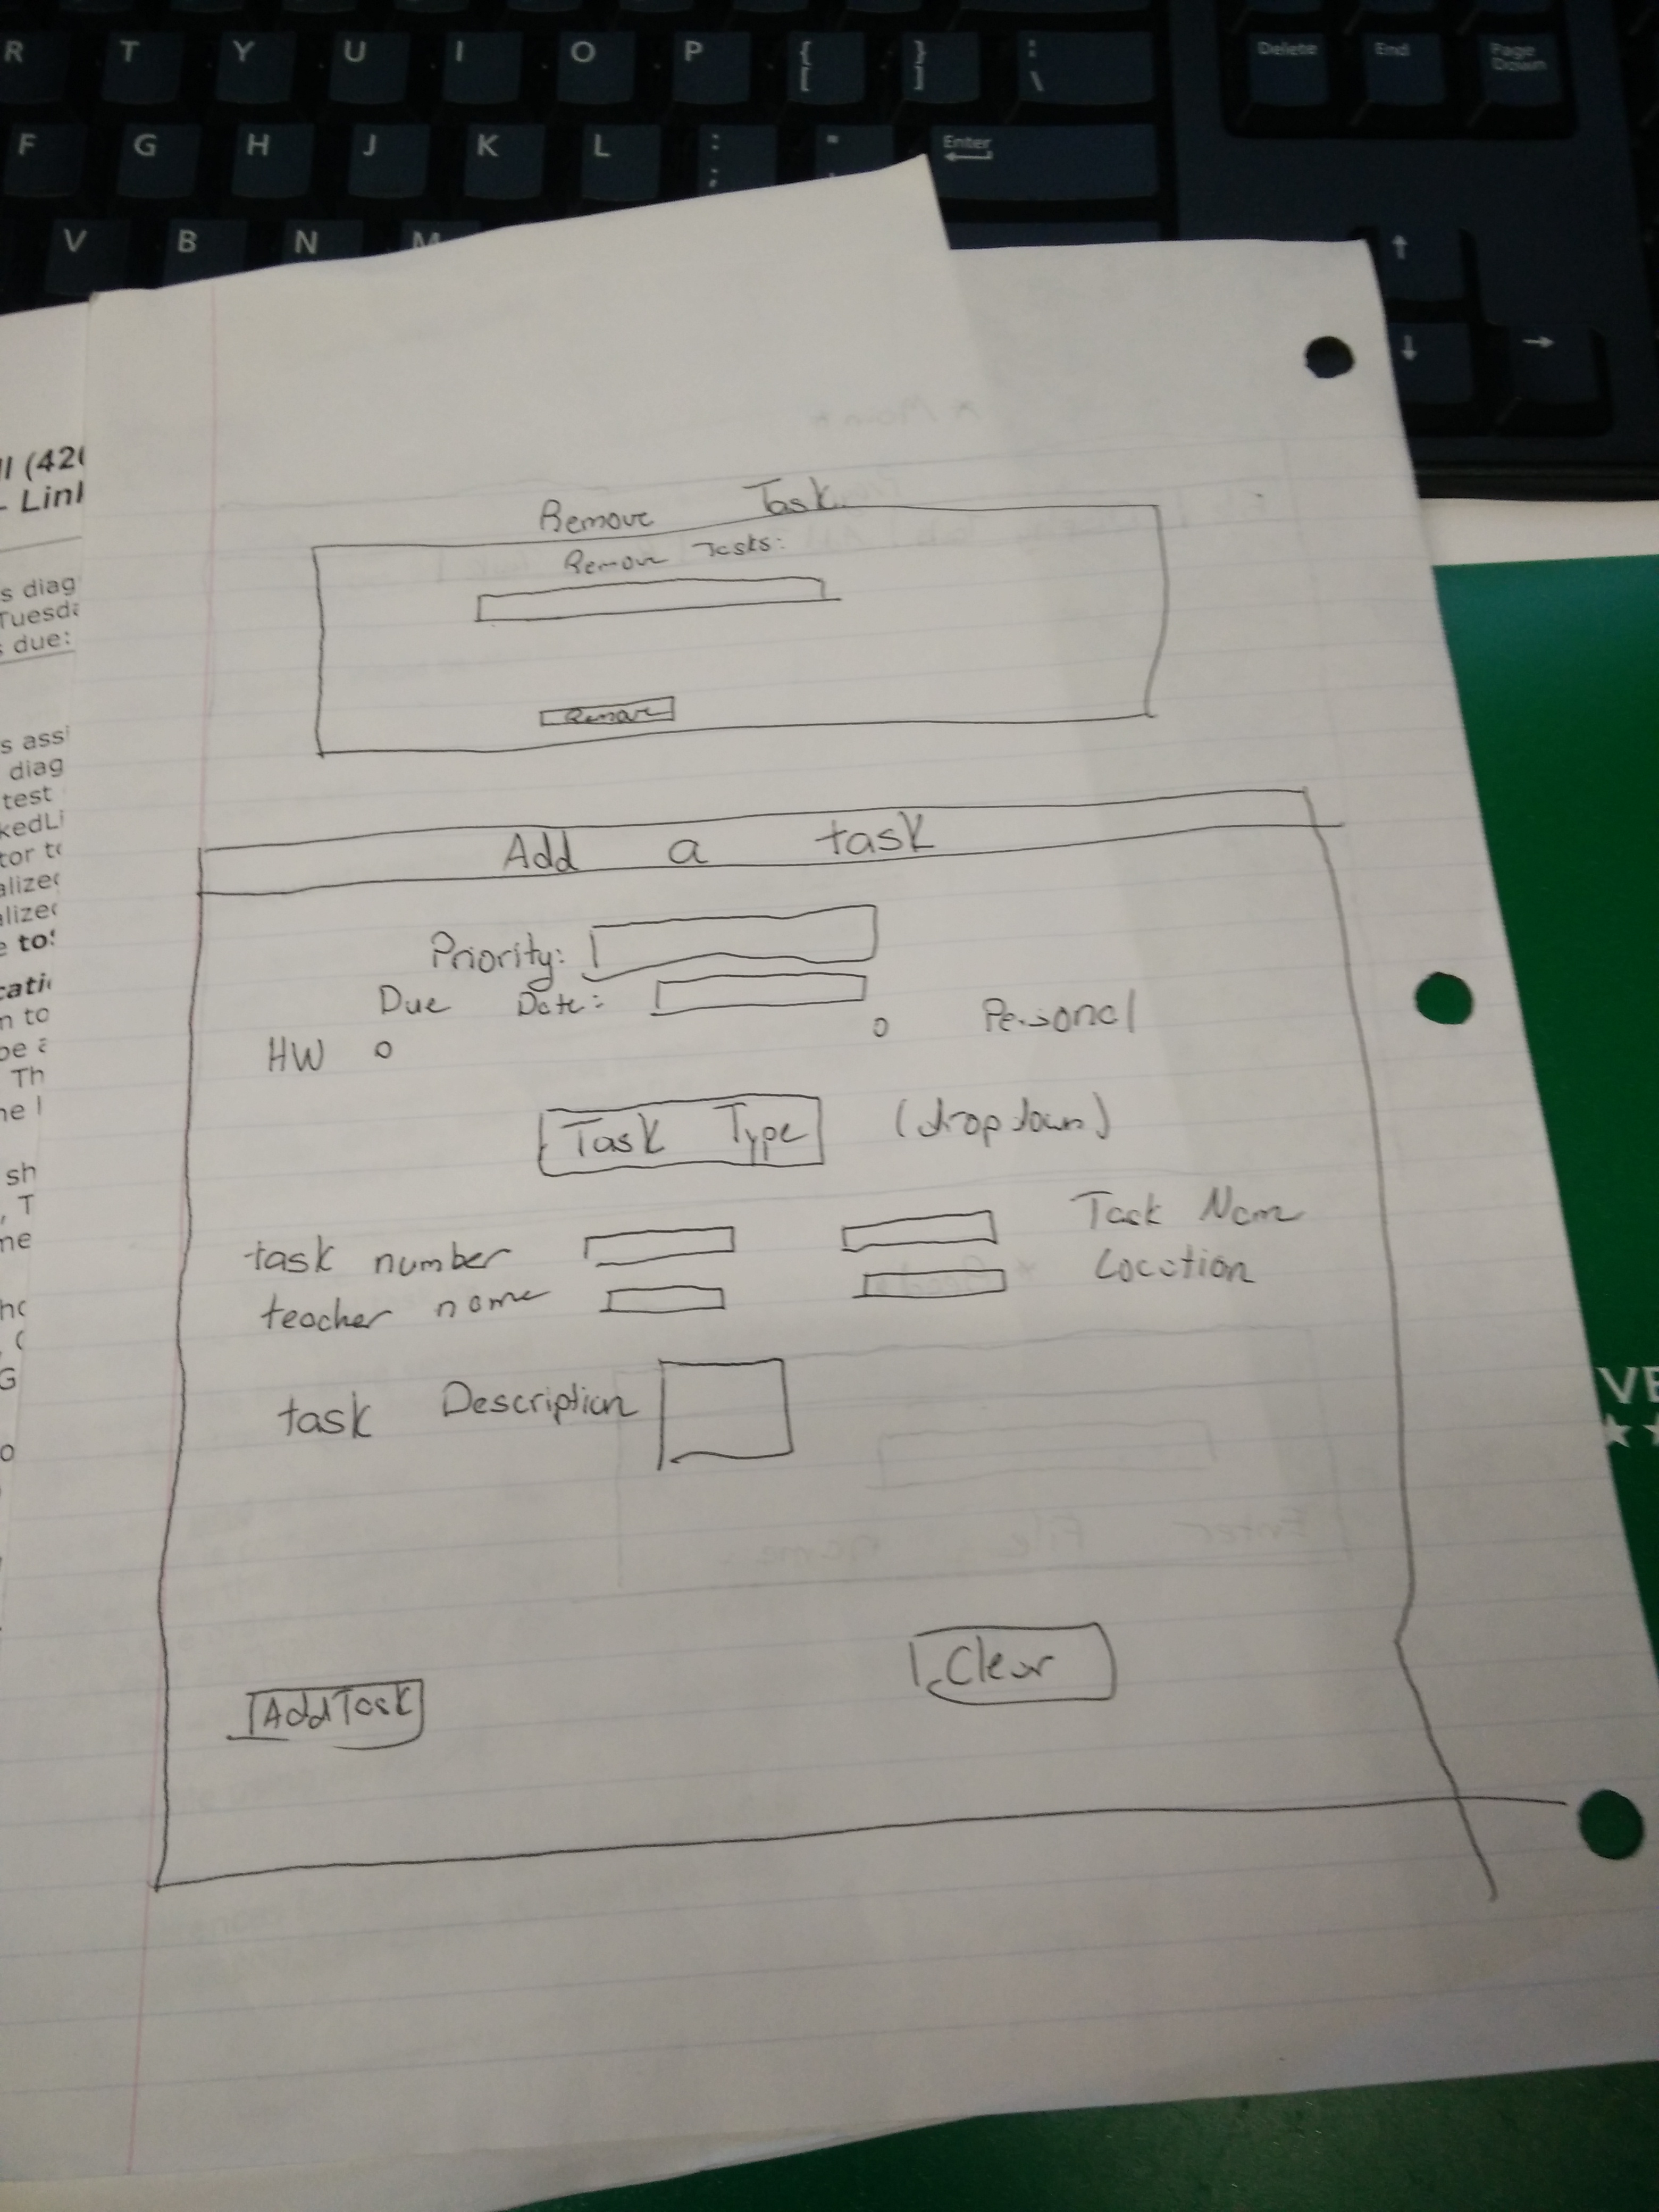 R T Y U I O P { [ } ] : \ Delete End Page Down
F G H J K L : ; " Enter
V B N M
Il (420
- Linl
s diag
Tuesda
s due:
s assi
diag
test
kedLi
tor to
alized
alized
e toS
cati
n to
be a
Th
ne l
sh
, T
me
G
Remove Task
Remove Tasks:
Remove
Add a task
Priority:
Due Date:
HW o o Personal
Task Type (dropdown)
task number Task Nam
teacher name Location
task Description
Add Task Clear
VE